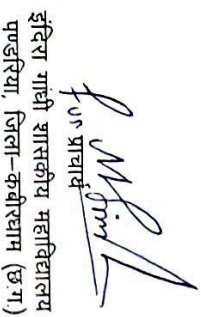 for प्राचार्य
इंदिरा गांधी शासकीय महाविद्यालय
पण्डरिया, जिला-कबीरधाम (छ.ग.)